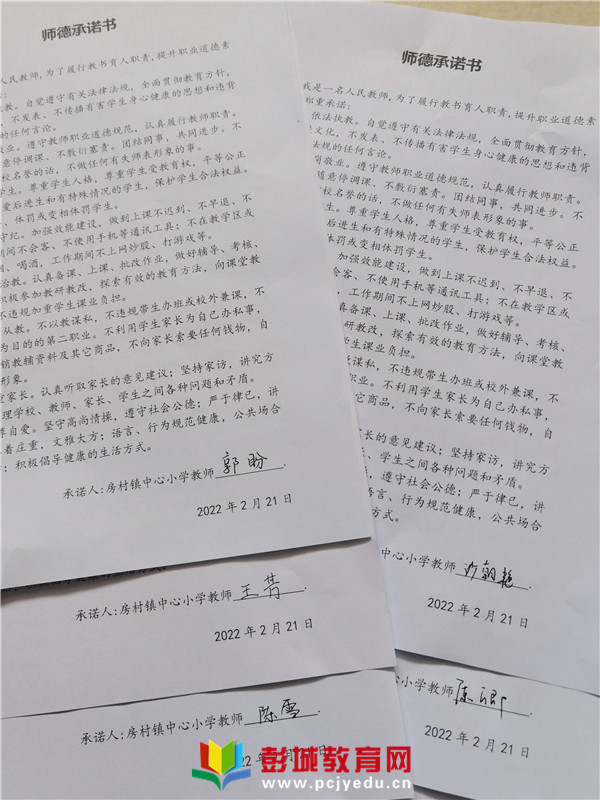 师德承诺书
人民教师,为了履行教书育人职责,提升职业道德素
:
执教。自觉遵守有关法律法规,全面贯彻教育方针,
、不发表、不传播有害学生身心健康的思想和违背
的任何言论。
敬业。遵守教师职业道德规范,认真履行教师职责。
意停调课、不敷衍塞责。团结同事,共同进步。不
校名誉的话,不做任何有失师表形象的事。
学生。尊重学生人格,尊重学生受教育权,平等公正
爱后进生和有特殊情况的学生,保护学生合法权益。
、体罚或变相体罚学生。
守纪。加强效能建设,做到上课不迟到、不早退、不
期间不会客、不使用手机等通讯工具;不在教学区或
烟、喝酒,工作期间不上网炒股、打游戏等。
治教。认真备课、上课、批改作业,做好辅导、考核、
积极参加教研教改,探索有效的教育方法,向课堂教
不违规加重学生课业负担。
从教。不以教谋私,不违规带生办班或校外兼课,不
为目的的第二职业。不利用学生家长为自己办私事,
销教辅资料及其它商品,不向家长索要任何钱物,自
形象。
重家长。认真听取家长的意见建议;坚持家访,讲究方
理学校、教师、家长、学生之间各种问题和矛盾。
尊自爱。坚守高尚情操,遵守社会公德;严于律已,讲
着庄重,文雅大方;语言、行为规范健康,公共场合
;积极倡导健康的生活方式。
承诺人:房村镇中心小学教师 郭盼
2022 年 2 月 21 日
师德承诺书
我是一名人民教师,为了履行教书育人职责,提升职业道德素
郑重承诺:
依法执教。自觉遵守有关法律法规,全面贯彻教育方针,
文化,不发表、不传播有害学生身心健康的思想和违背
法规的任何言论。
岗敬业。遵守教师职业道德规范,认真履行教师职责。
随意停调课、不敷衍塞责。团结同事,共同进步。不
校名誉的话,不做任何有失师表形象的事。
生。尊重学生人格,尊重学生受教育权,平等公正
后进生和有特殊情况的学生,保护学生合法权益。
体罚或变相体罚学生。
加强效能建设,做到上课不迟到、不早退、不
会客、不使用手机等通讯工具;不在教学区或
,工作期间不上网炒股、打游戏等。
真备课、上课、批改作业,做好辅导、考核、
教研教改,探索有效的教育方法,向课堂教
学生课业负担。
谋私,不违规带生办班或校外兼课,不
职业。不利用学生家长为自己办私事,
它商品,不向家长索要任何钱物,自
家长的意见建议;坚持家访,讲究方
长、学生之间各种问题和矛盾。
,遵守社会公德;严于律已,讲
语言、行为规范健康,公共场合
方式。
中心小学教师
2022 年 2 月 21 日
承诺人:房村镇中心小学教师 王芳
2022 年 2 月 21 日
心小学教师
2022 年 2 月 21 日
承诺人:房村镇中心小学教师 陈雪
22 年 2 月 21 日
彭城教育网
www.pcjyedu.cn